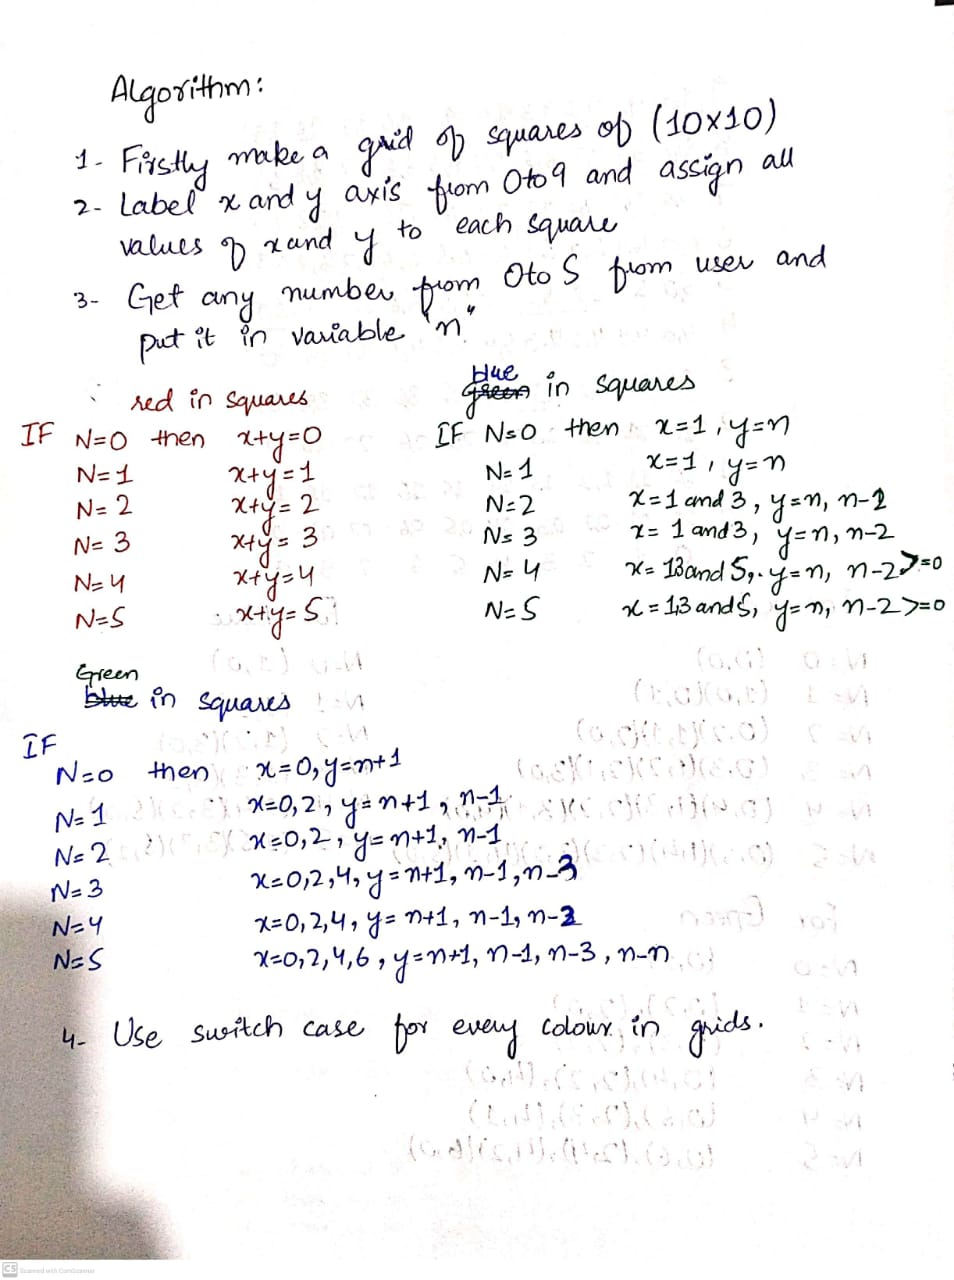 Algorithm:
1- Firstly make a grid of squares of (10x10)
2- Label x and y axis from 0 to 9 and assign all
values of x and y to each square
3- Get any number from 0 to 5 from user and
put it in variable "n"
red in squares
IF N=0 then x+y=0
N=1 x+y=1
N=2 x+y=2
N=3 x+y=3
N=4 x+y=4
N=5 x+y=5
blue
green in squares
IF N=0 then x=1, y=n
N=1 x=1, y=n
N=2 x=1 and 3, y=n, n-2
N=3 x=1 and 3, y=n, n-2
N=4 x=13 and 5, y=n, n-2>=0
N=5 x=1,3 and 5, y=n, n-2>=0
Green
blue in squares
IF
N=0 then x=0, y=n+1
N=1 x=0,2, y=n+1, n-1
N=2 x=0,2, y=n+1, n-1
N=3 x=0,2,4, y=n+1, n-1, n-3
N=4 x=0,2,4, y=n+1, n-1, n-3
N=5 x=0,2,4,6, y=n+1, n-1, n-3, n-n
4- Use switch case for every colour in grids.
CS Scanned with CamScanner